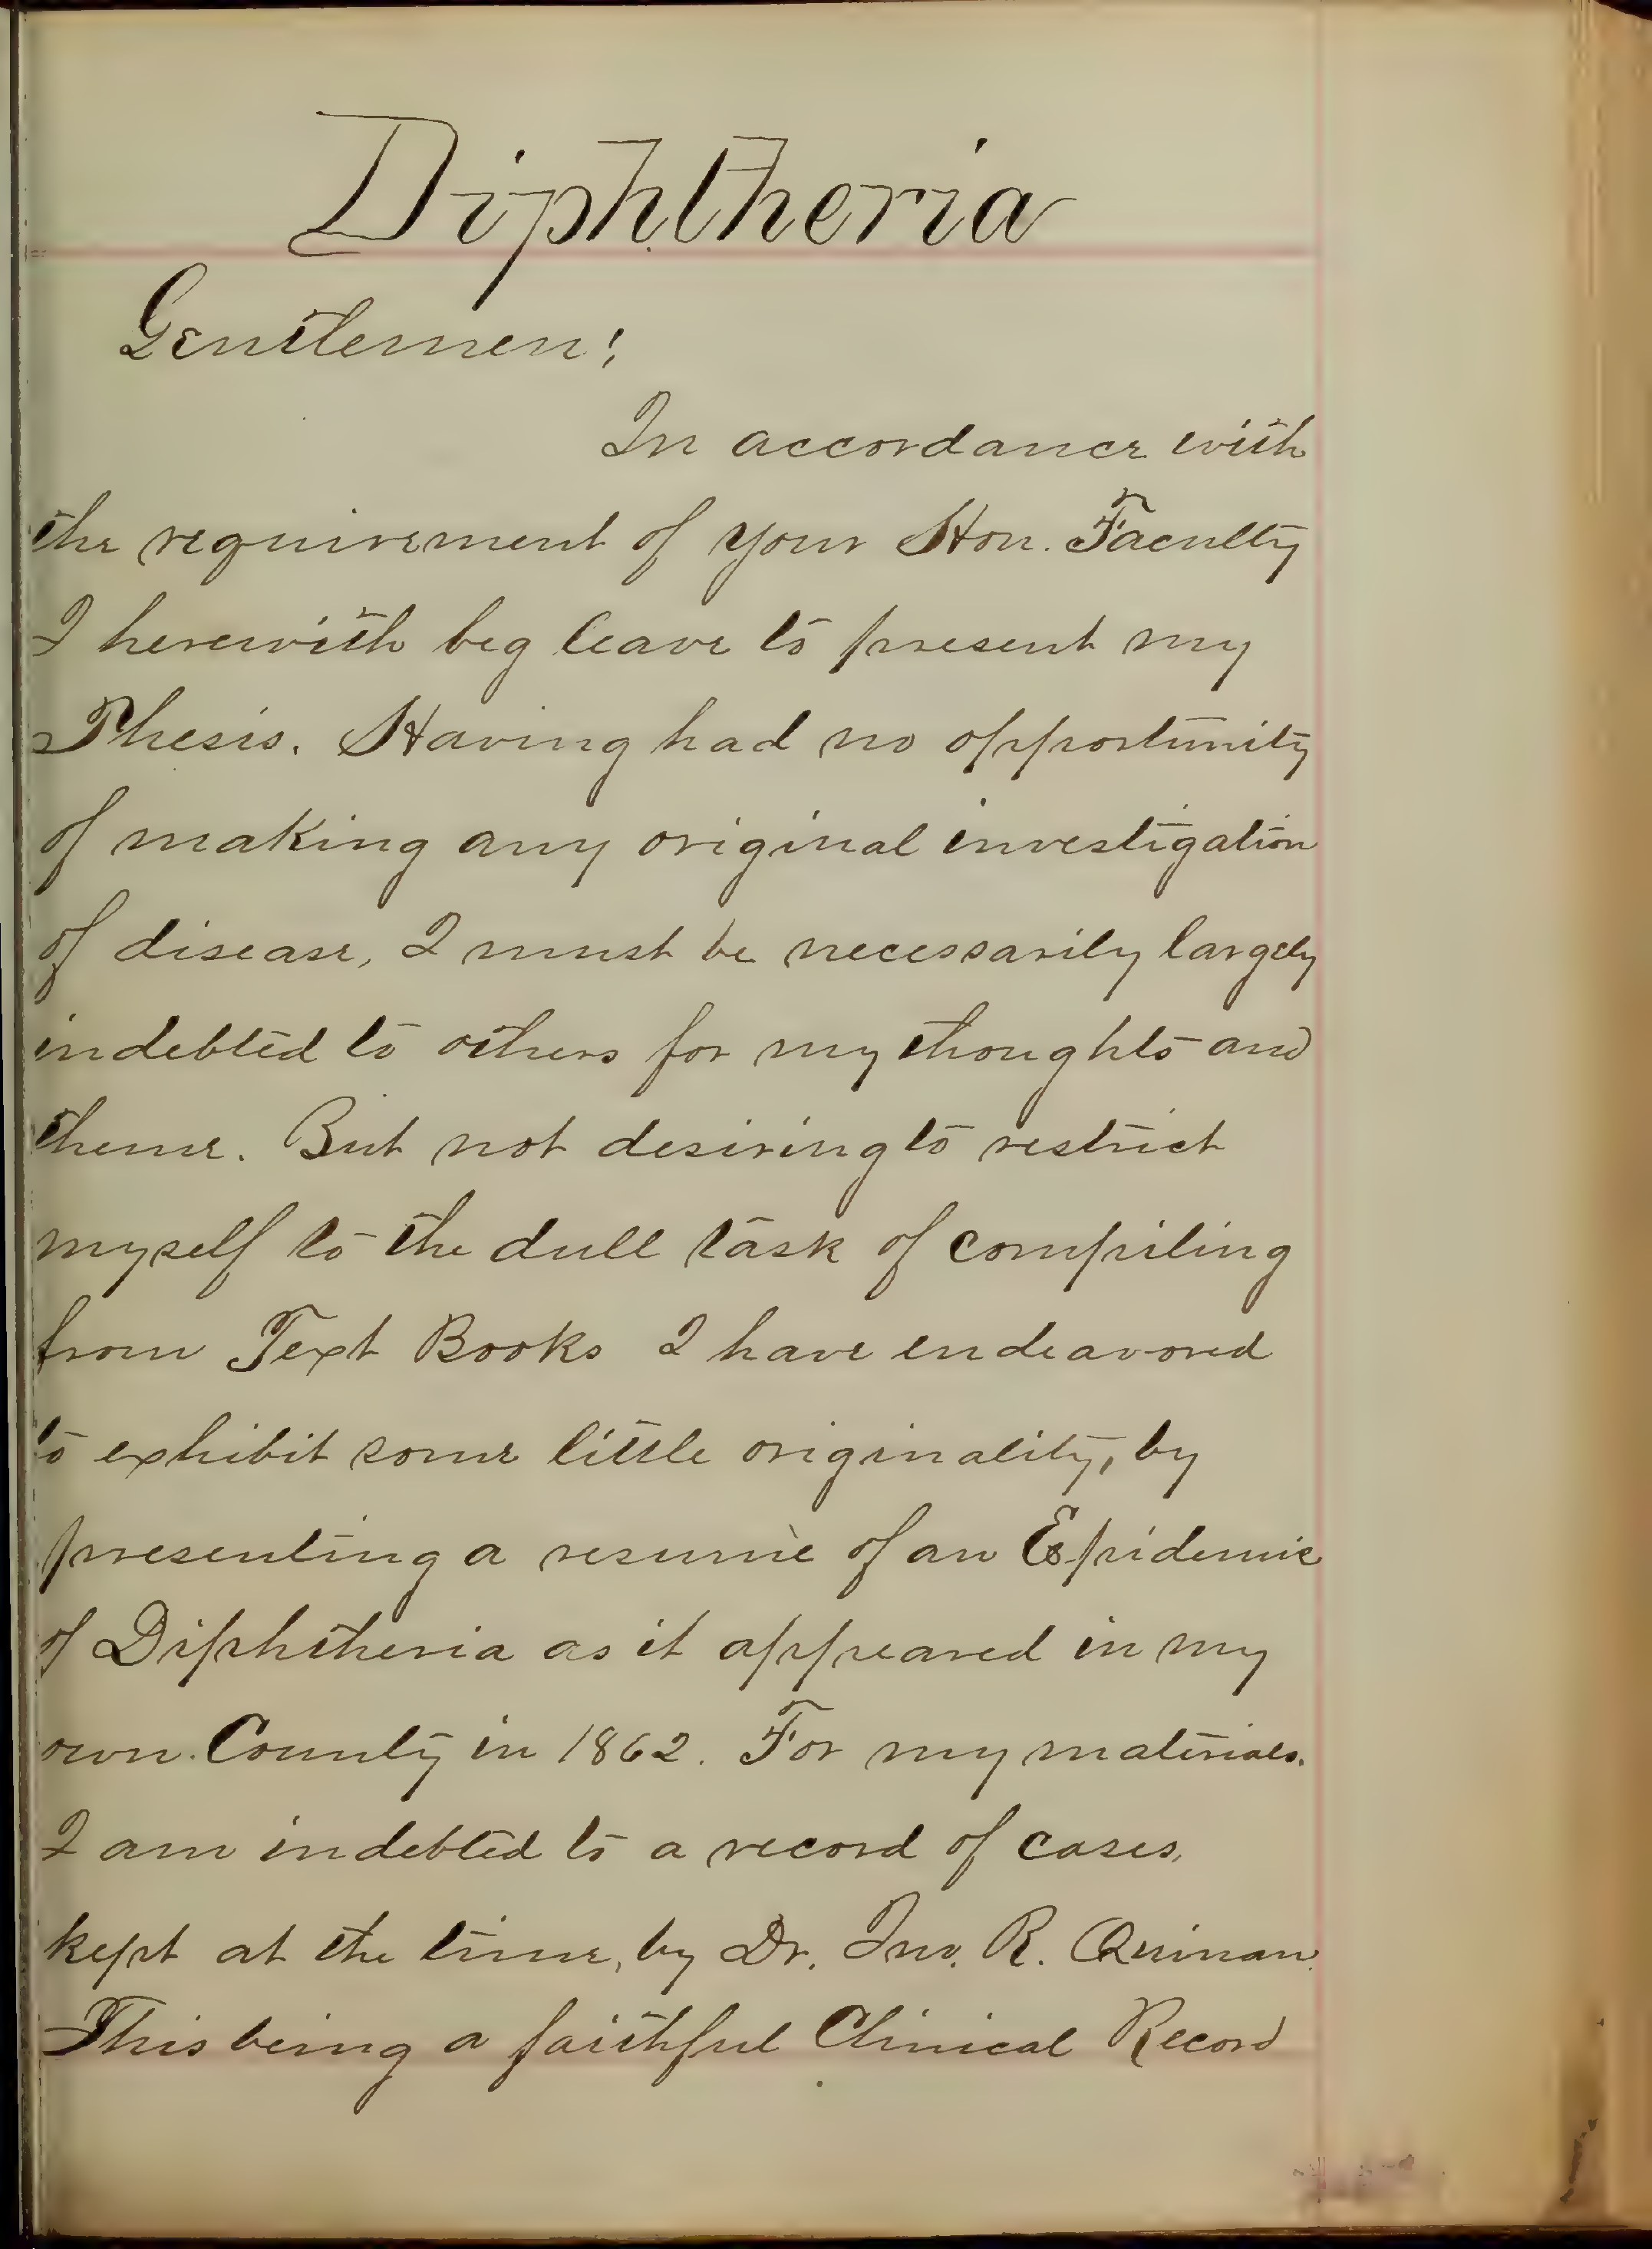 Diphtheria
Gentlemen;
In accordance with
the requirement of your Hon. Faculty
I herewith beg leave to present my
Thesis. Having had no opportunity
of making any original investigation
of disease, I must be necessarily largely
indebted to others for my thoughts and
theme. But not desiring to restrict
myself to the dull task of compiling
from Text Books I have endeavored
to exhibit some little originality, by
presenting a resumè of an Epidemic
of Diphtheria as it appeared in my
own County in 1862. For my materials.
I am indebted to a record of cases,
kept at the time, by Dr. Jno. R. Quinan.
This being a faithful Clinical Record